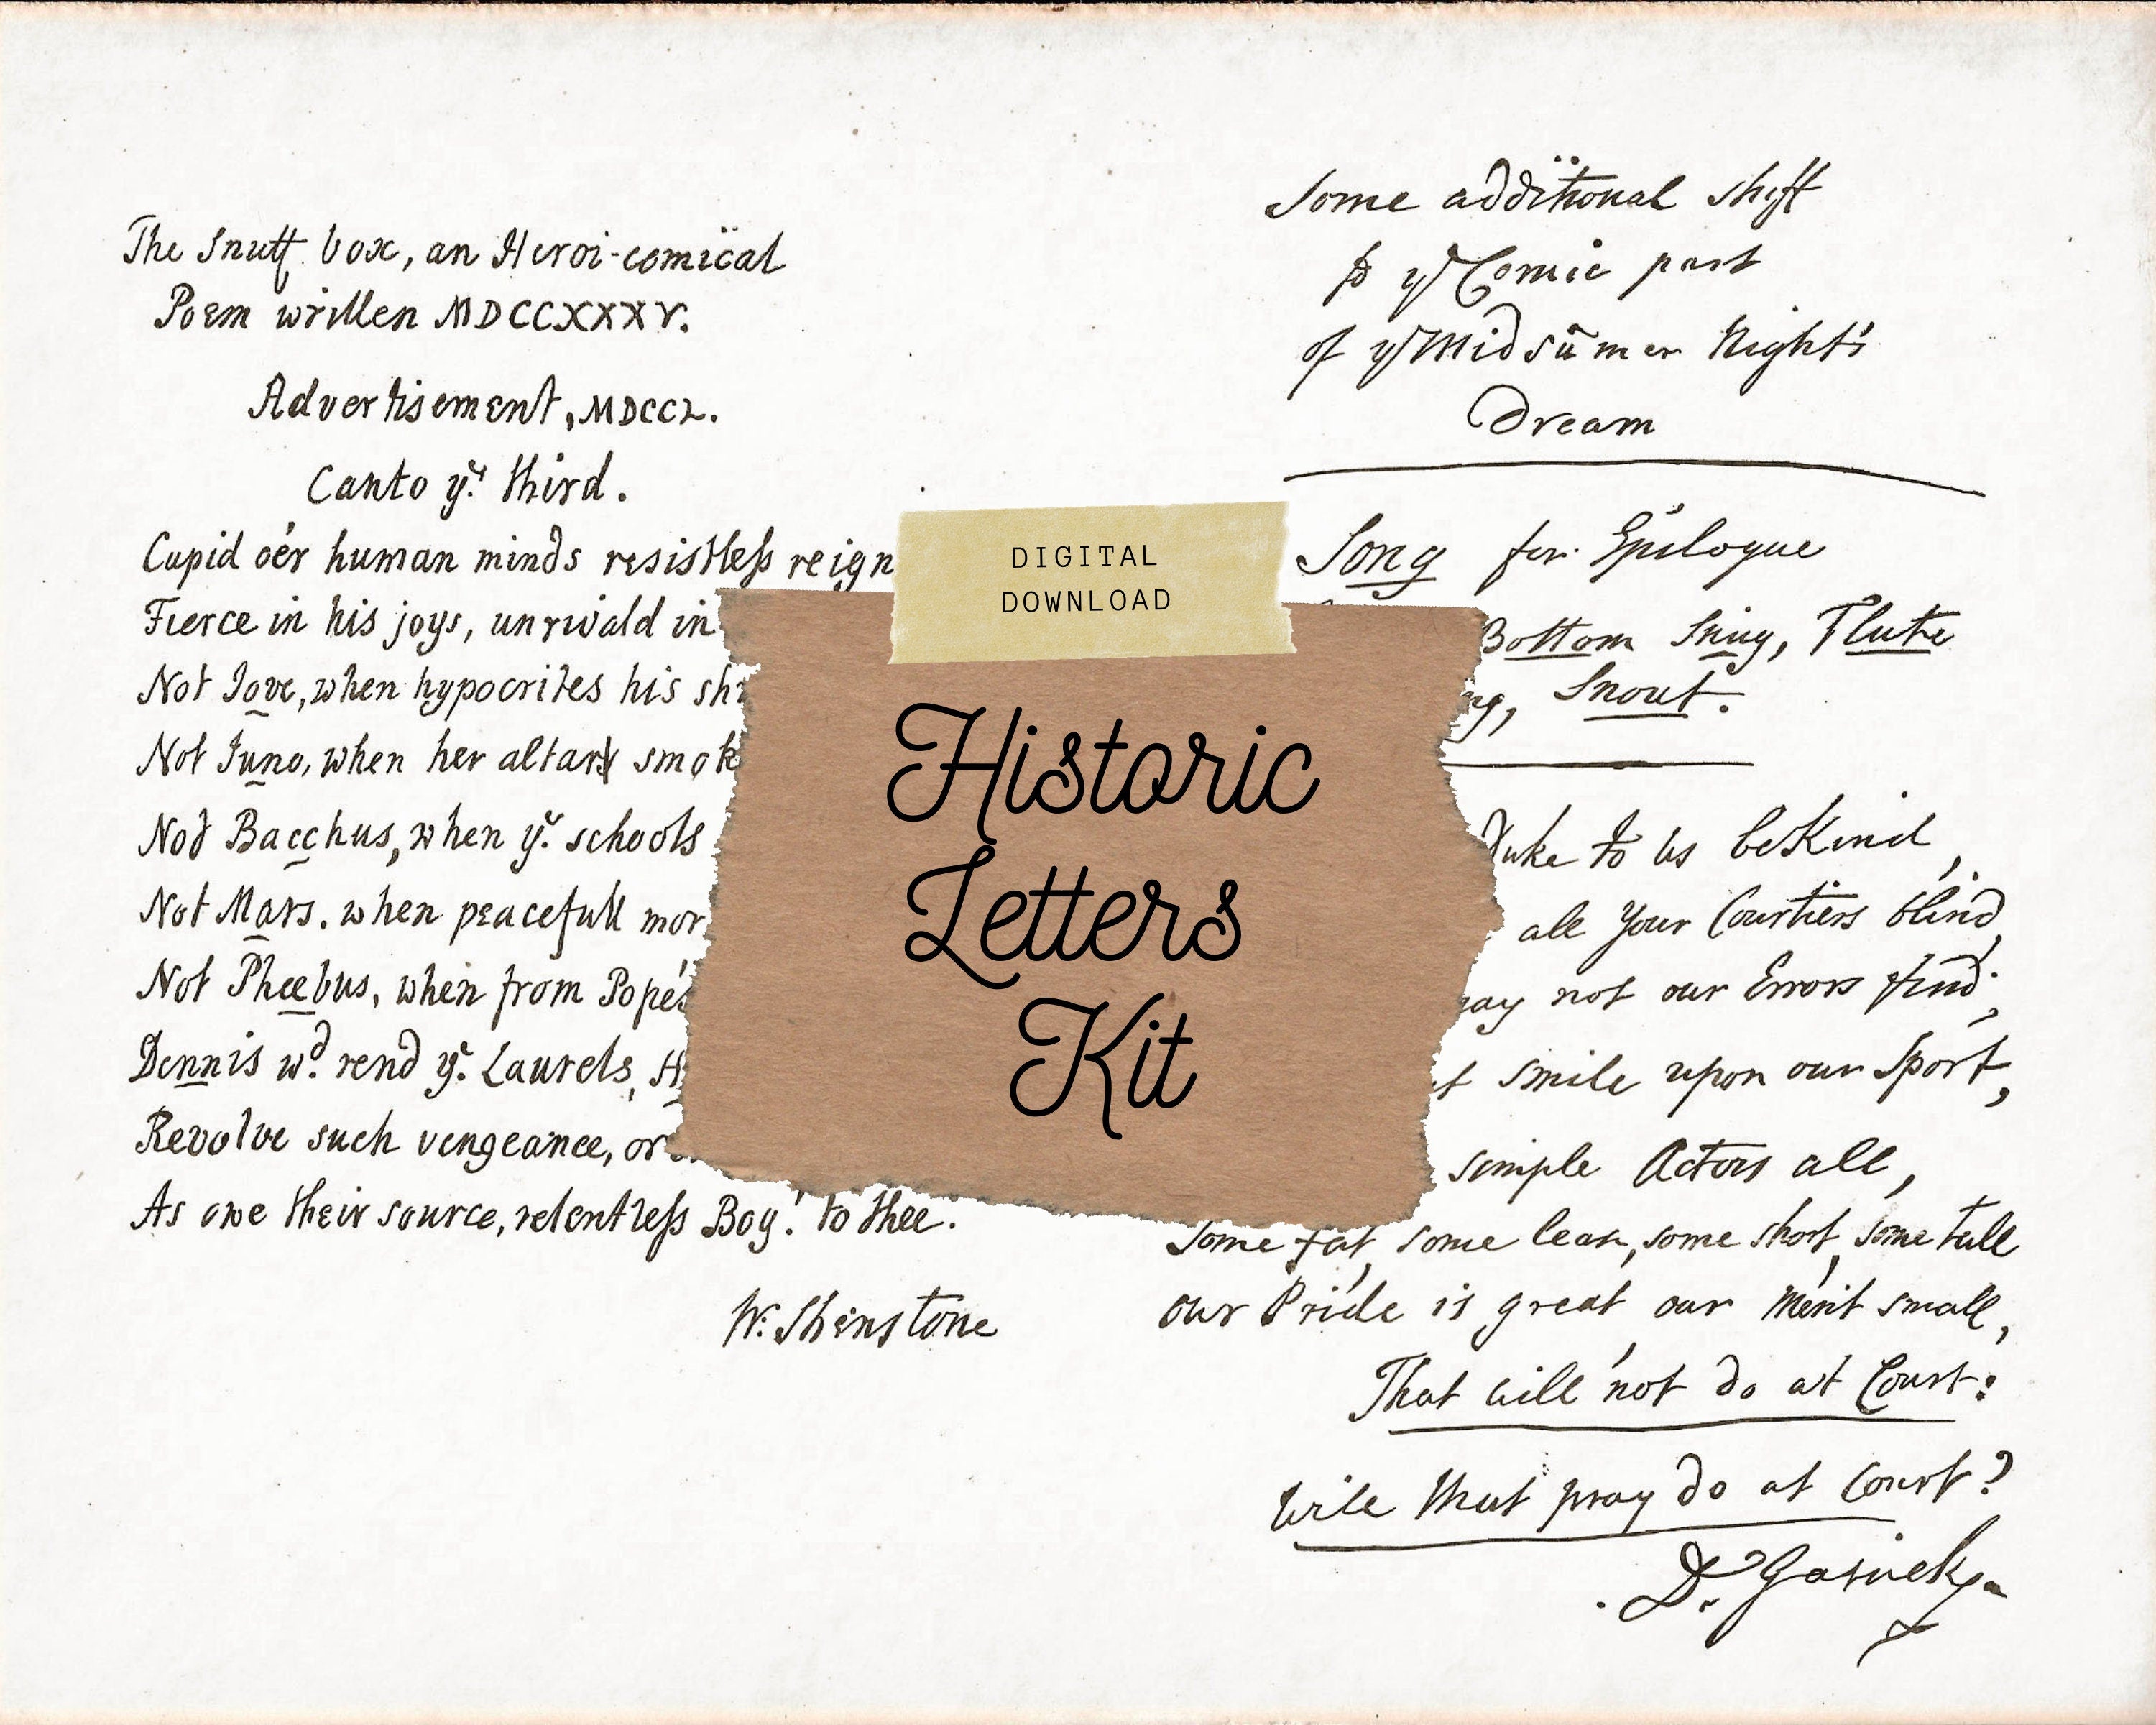 The Snuff box, an Heroi-comical
Poem written MDCCXXXV.
Advertisement, MDCCL.
Canto yᵉ third.
Cupid o'er human minds resistless reign
Fierce in his joys, unrivald in
Not Jove, when hypocrites his
Not Juno, when her altars smok
Not Bacchus, when yᵉ schools
Not Mars. when peacefull mor
Not Phœbus, when from Pope's
Dennis wᵈ rend yᵉ Laurels,
Revolve such vengeance, or
As owe their source, relentless Boy! to thee.
W. Shenstone
DIGITAL
DOWNLOAD
Historic
Letters
Kit
Some additional shift
to yᵉ Comic part
of yᵉ Midsum̄er Night's
Dream
Song for Epilogue
Bottom Snug, Flute
Snout.
Duke to us be Kind,
all Your Courtiers blind,
may not our Errors find,
smile upon our Sport,
simple Actors all,
Some fat, some lean, some short, some tall
our Pride is great, our Merit small,
That will not do at Court:
Will that pray do at Court?
D. Garrick